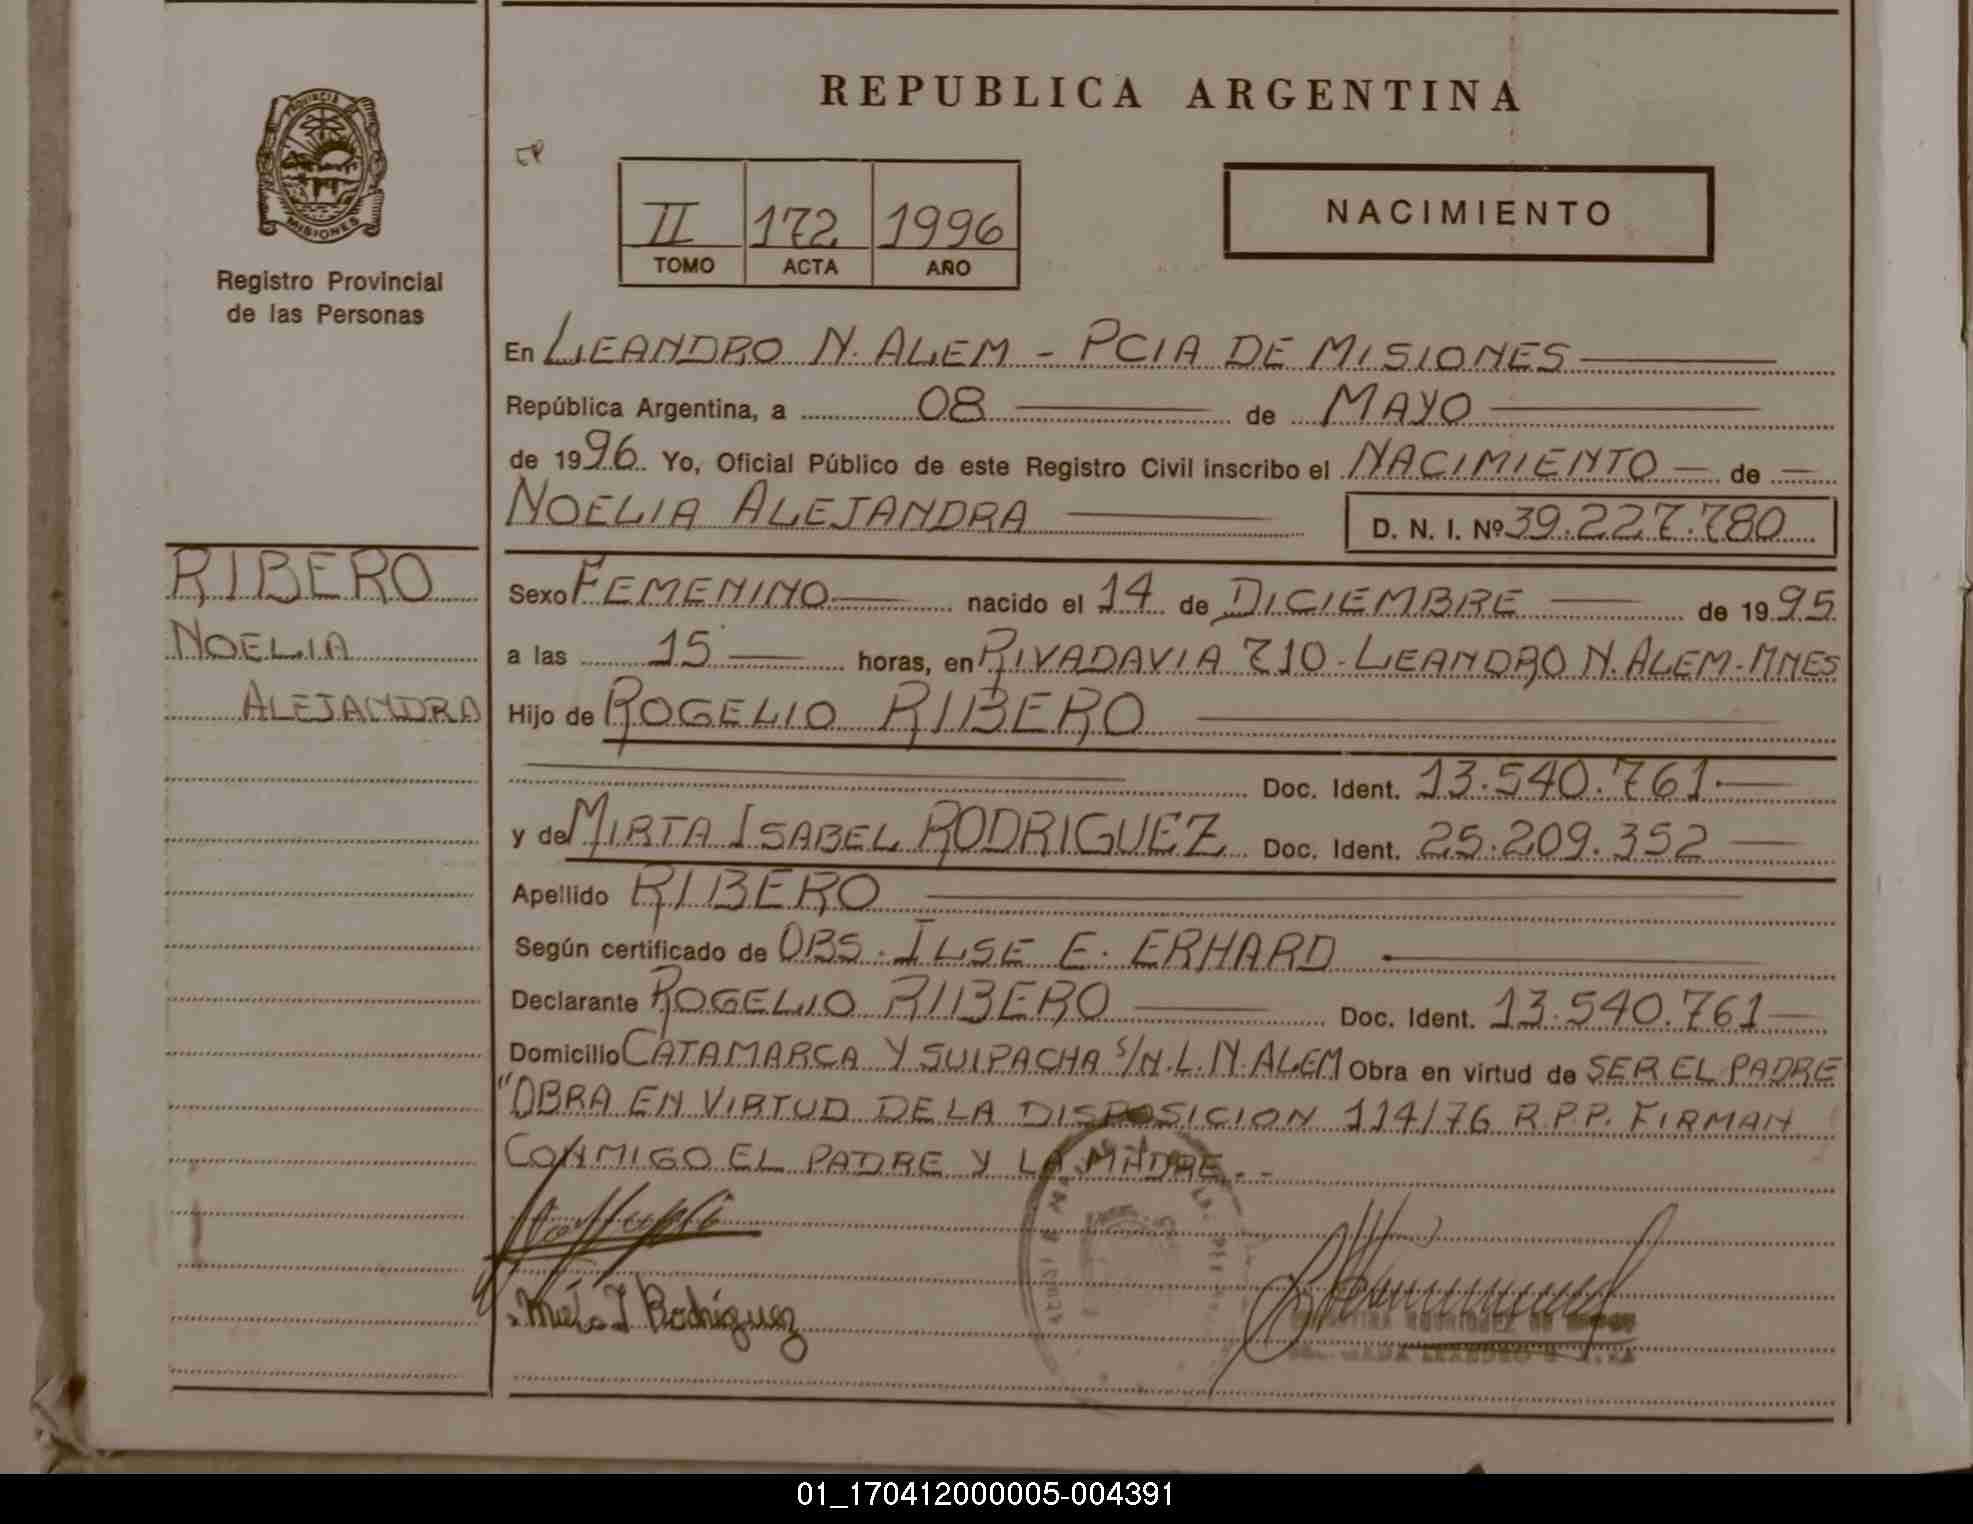 REPUBLICA ARGENTINA
PROVINCIA DE
MISIONES
Registro Provincial
de las Personas
II 172 1996
TOMO ACTA AÑO
NACIMIENTO
En LEANDRO N. ALEM - PCIA DE MISIONES
República Argentina, a 08 de MAYO
de 1996. Yo, Oficial Público de este Registro Civil inscribo el NACIMIENTO de
NOELIA ALEJANDRA D. N. I. Nº 39.227.780
RIBERO
NOELIA
ALEJANDRA
Sexo FEMENINO nacido el 14 de DICIEMBRE de 1995
a las 15 horas, en RIVADAVIA 710 - LEANDRO N. ALEM - MNES
Hijo de ROGELIO RIBERO
Doc. Ident. 13.540.761
y de MIRTA ISABEL RODRIGUEZ Doc. Ident. 25.209.352
Apellido RIBERO
Según certificado de OBS. ILSE E. ERHARD
Declarante ROGELIO RIBERO Doc. Ident. 13.540.761
Domicilio CATAMARCA Y SUIPACHA S/N. L. N. ALEM Obra en virtud de SER EL PADRE
"OBRA EN VIRTUD DE LA DISPOSICION 114/76 R.P.P. FIRMAN
CONMIGO EL PADRE Y LA MADRE.-
I Rodríguez
RODRIGUEZ
LEANDRO
01_170412000005-004391